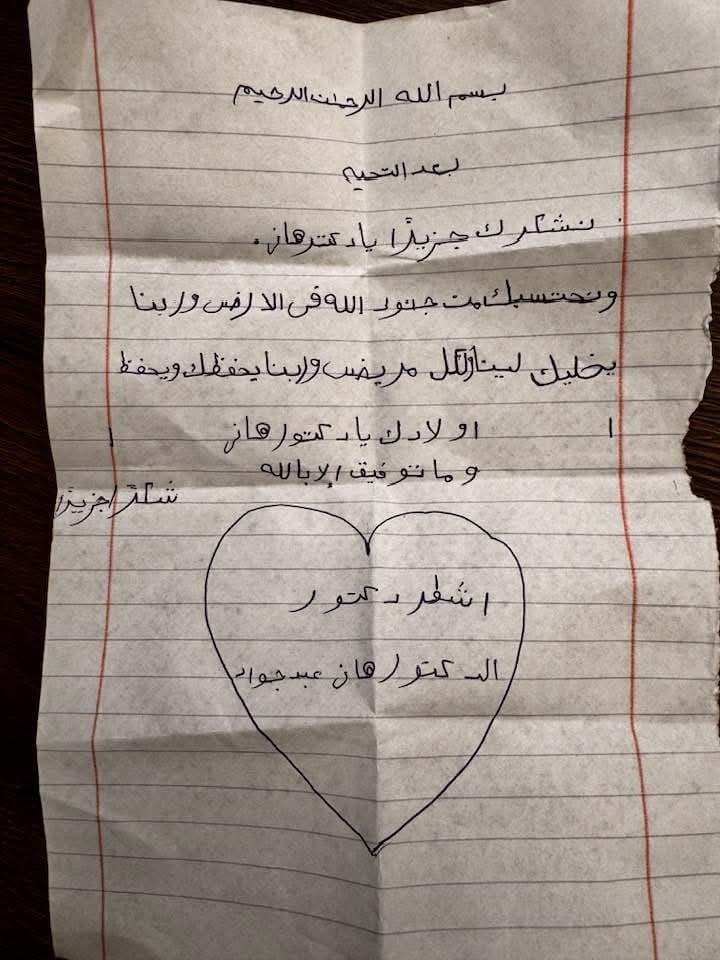 بسم الله الرحمن الرحيم
بعد التحيه
نشكرك جزيدًا يا دكتر هاني.
ونحتسبك من جنود الله في الارض وربنا
يخليك لينا ولكل مريض وربنا يحفظك ويحفظ
اولادك يا دكتور هاني
وما توفيق إلا بالله
شكرًا جزيدًا
اشطر دكتور
الدكتور هاني عبدجواد